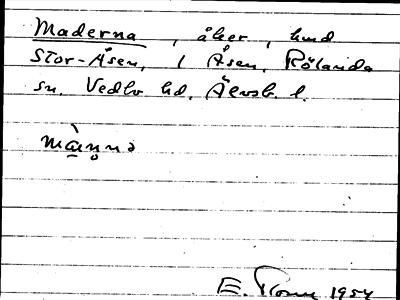 Maderna, åker, hmd
Stor-Åsen, 1 Åsen, Rölanda
sn. Vedbo hd. Älvsb. l.
E. 1954